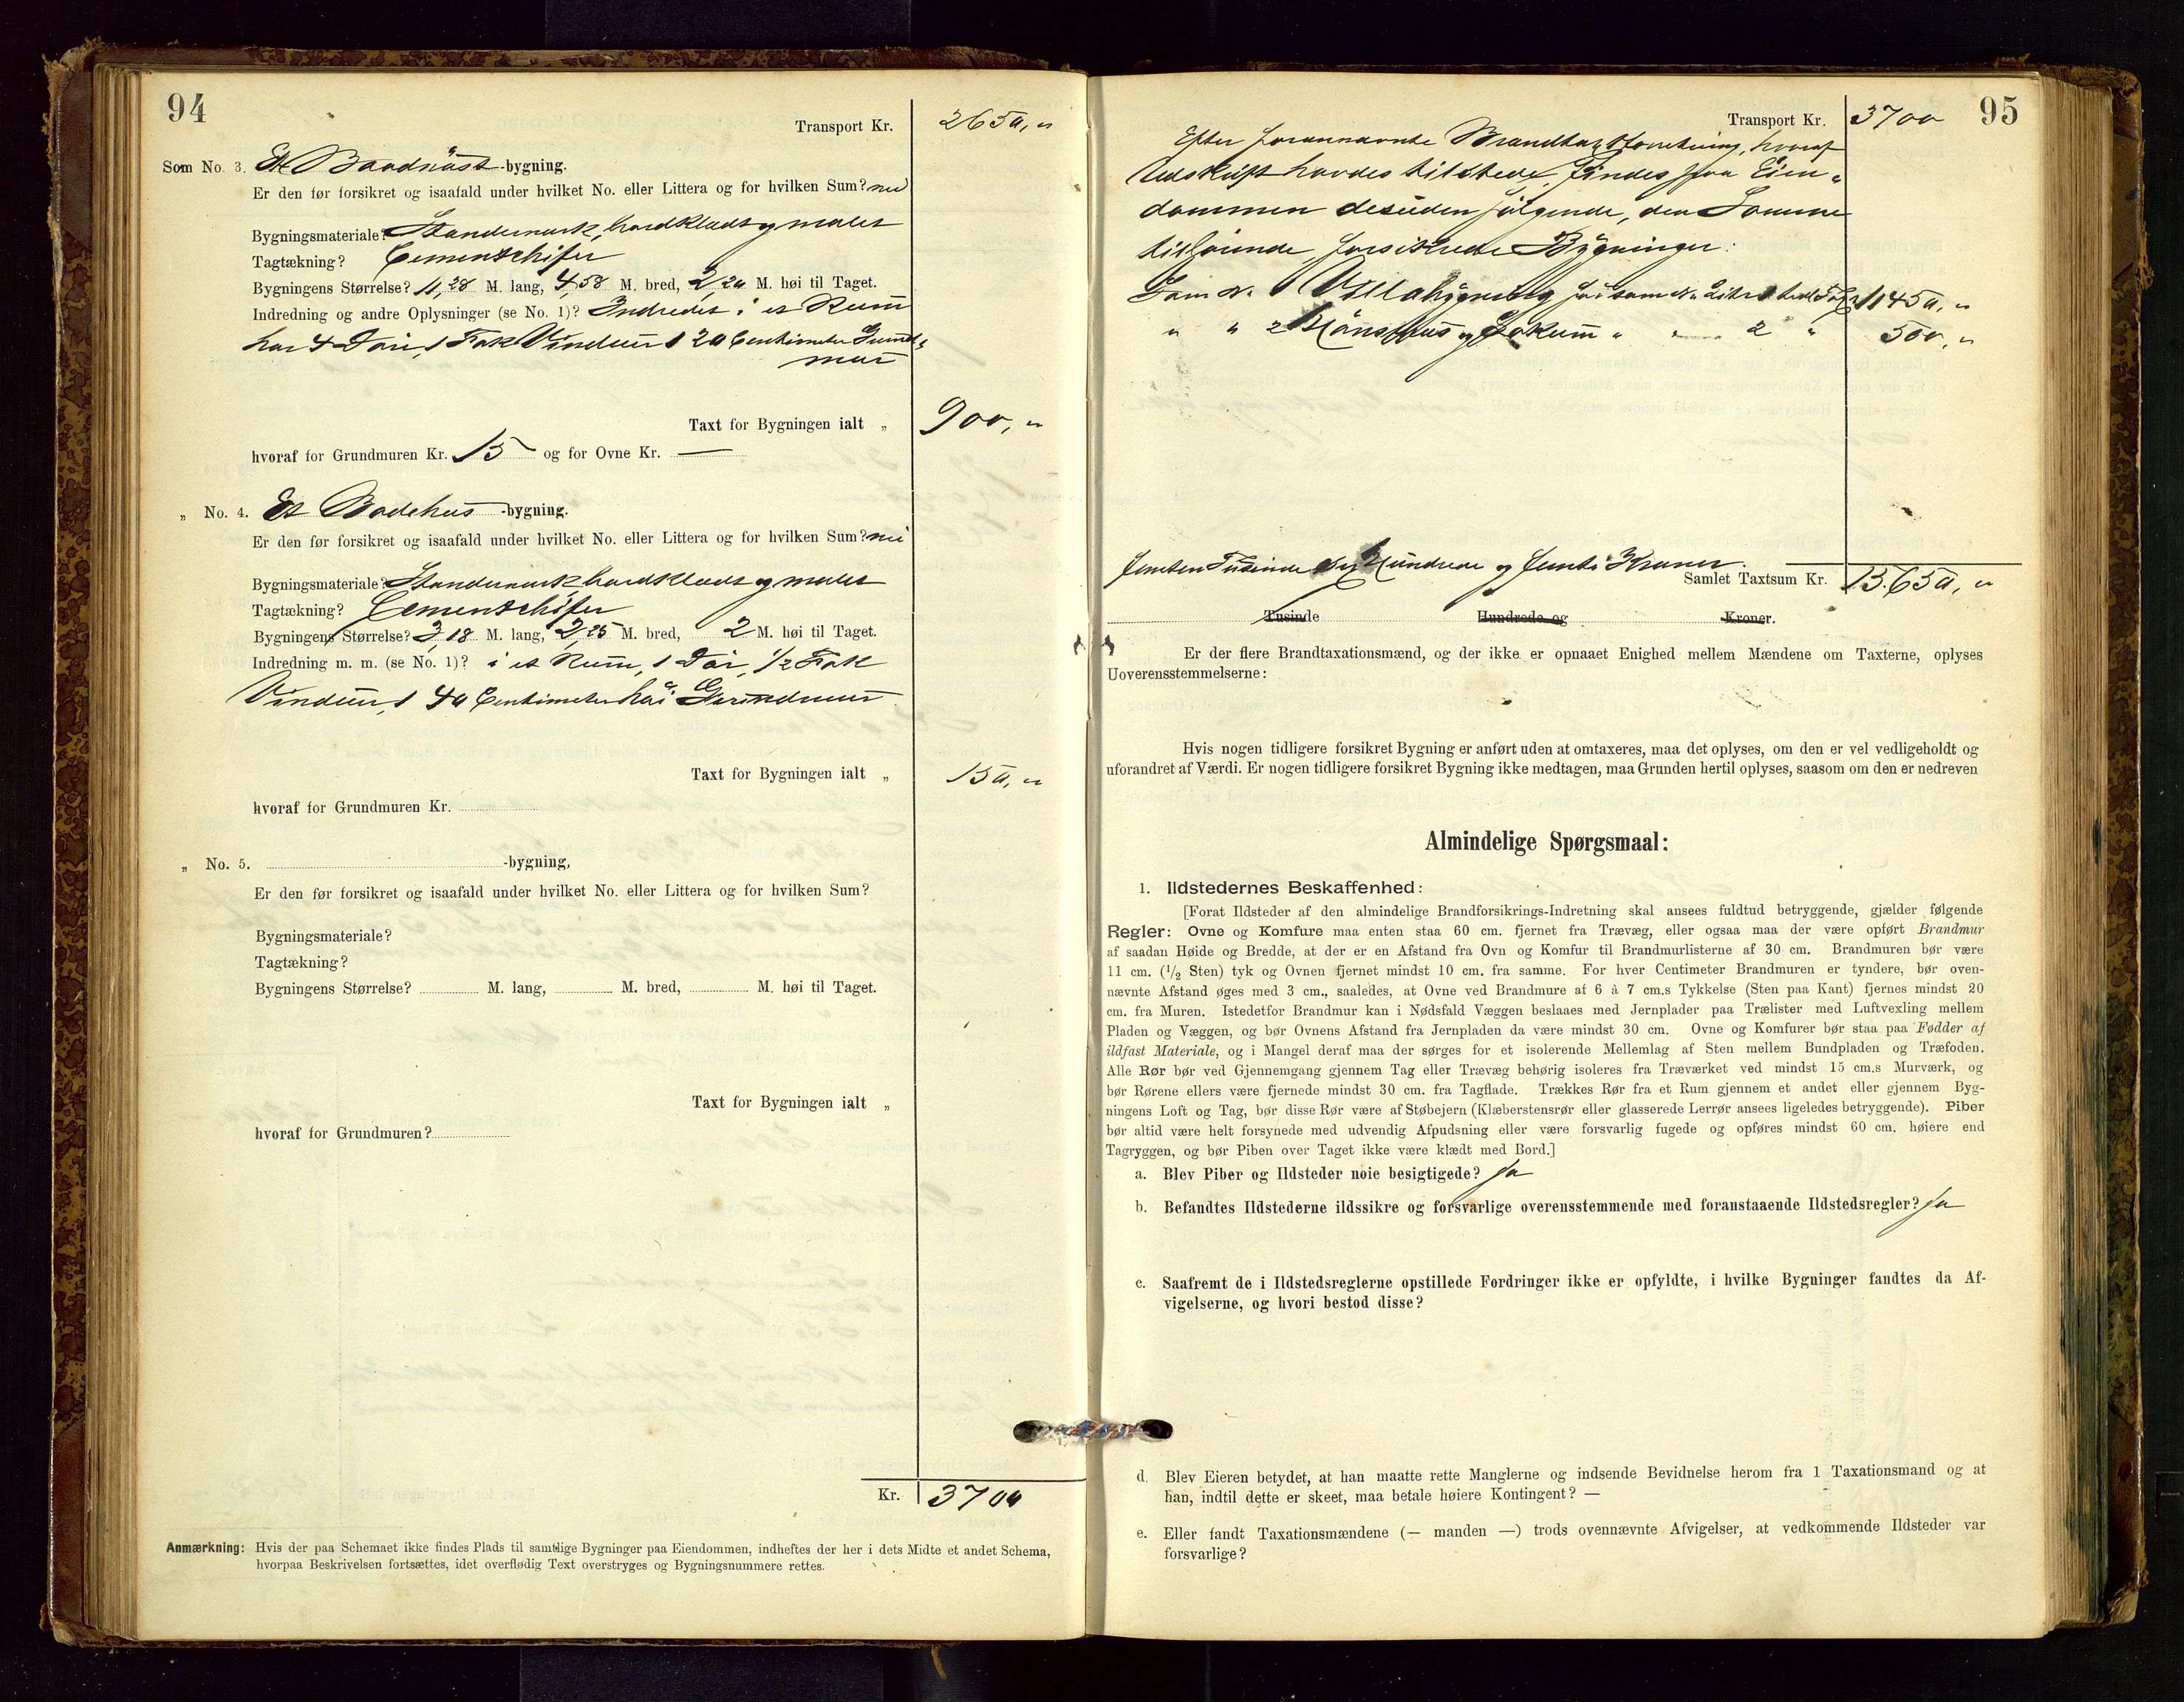 94
Transport Kr. 2650, „
Som No. 3. Et Baadnøst -bygning.
Er den før forsikret og isaafald under hvilket No. eller Littera og for hvilken Sum? nei
Bygningsmateriale? Standerværk, bordklædt og malet
Tagtækning? Cementskifer
Bygningens Størrelse? 11,28 M. lang, 4,58 M. bred, 2,20 M. høi til Taget.
Indredning og andre Oplysninger (se No. 1)? Indredet i et Rum
har 4 Døre, 1 Fak Vinduer 1 20 Centimeter Grund-
mur
Taxt for Bygningen ialt „ 900, „
hvoraf for Grundmuren Kr. 15 og for Ovne Kr. —
„ No. 4. Et Badehus -bygning.
Er den før forsikret og isaafald under hvilket No. eller Littera og for hvilken Sum? nei
Bygningsmateriale? Standerværk, bordklædt og malet
Tagtækning? Cementskifer
Bygningens Størrelse? 3,18 M. lang, 2,25 M. bred, 2 M. høi til Taget.
Indredning m. m. (se No. 1)? i et Rum, 1 Dør, 1/2 Fak
Vinduer, 1 40 Centimeter høi Grundmur
Taxt for Bygningen ialt „ 150, „
hvoraf for Grundmuren Kr.
„ No. 5. -bygning,
Er den før forsikret og isaafald under hvilket No. eller Littera og for hvilken Sum?
Bygningsmateriale?
Tagtækning?
Bygningens Størrelse? M. lang, M. bred, M. høi til Taget.
Taxt for Bygningen ialt „
hvoraf for Grundmuren?
Kr. 3700
Anmærkning: Hvis der paa Schemaet ikke findes Plads til samtlige Bygninger paa Eiendommen, indheftes der her i dets Midte et andet Schema,
hvorpaa Beskrivelsen fortsættes, idet overflødig Text overstryges og Bygningsnummere rettes.
95
Transport Kr. 3700
Efter forannævnte Brandtaxtforretning, hvoraf
Udskrift havdes tilstede, findes paa Eien-
dommen desuden følgende, den Samme
tilhørende, forsikrede Bygninger:
Som No 1 Villabygning før som No 1150, „
„ „ 2 Hønsehus og „ „ 2 „ 500, „
Femten Tusinde Sex Hundrede og femti Kroner.
Samlet Taxtsum Kr. 15.650, „
Tusinde Hundrede og Kroner.
Er der flere Brandtaxationsmænd, og der ikke er opnaaet Enighed mellem Mændene om Taxterne, oplyses
Uoverensstemmelserne:
Hvis nogen tidligere forsikret Bygning er anført uden at omtaxeres, maa det oplyses, om den er vel vedligeholdt og
uforandret af Værdi. Er nogen tidligere forsikret Bygning ikke medtagen, maa Grunden hertil oplyses, saasom om den er nedreven
Almindelige Spørgsmaal:
1. Ildstedernes Beskaffenhed:
[Forat Ildsteder af den almindelige Brandforsikrings-Indretning skal ansees fuldtud betryggende, gjælder følgende
Regler: Ovne og Komfure maa enten staa 60 cm. fjernet fra Trævæg, eller ogsaa maa der være opført Brandmur
af saadan Høide og Bredde, at der er en Afstand fra Ovn og Komfur til Brandmurlisterne af 30 cm. Brandmuren bør være
11 cm. (1/2 Sten) tyk og Ovnen fjernet mindst 10 cm. fra samme. For hver Centimeter Brandmuren er tyndere, bør oven-
nævnte Afstand øges med 3 cm., saaledes, at Ovne ved Brandmure af 6 à 7 cm.s Tykkelse (Sten paa Kant) fjernes mindst 20
cm. fra Muren. Istedetfor Brandmur kan i Nødsfald Væggen beslaaes med Jernplader paa Trælister med Luftvexling mellem
Pladen og Væggen, og bør Ovnens Afstand fra Jernpladen da være mindst 30 cm. Ovne og Komfurer bør staa paa Fødder af
ildfast Materiale, og i Mangel deraf maa der sørges for et isolerende Mellemlag af Sten mellem Bundpladen og Træfoden.
Alle Rør bør ved Gjennemgang gjennem Tag eller Trævæg behørig isoleres fra Træværket ved mindst 15 cm.s Murværk, og
bør Rørene ellers være fjernede mindst 30 cm. fra Tagflade. Trækkes Rør fra et Rum gjennem et andet eller gjennem Byg-
ningens Loft og Tag, bør disse Rør være af Støbejern (Klæberstensrør eller glasserede Lerrør ansees ligeledes betryggende). Piber
bør altid være helt forsynede med udvendig Afpudsning eller være forsvarlig fugede og opføres mindst 60 cm. høiere end
Tagryggen, og bør Piben over Taget ikke være klædt med Bord.]
a. Blev Piber og Ildsteder nøie besigtigede? ja
b. Befandtes Ildstederne ildssikre og forsvarlige overensstemmende med foranstaaende Ildstedsregler? ja
c. Saafremt de i Ildstedsreglerne opstillede Fordringer ikke er opfyldte, i hvilke Bygninger fandtes da Af-
vigelserne, og hvori bestod disse?
d. Blev Eieren betydet, at han maatte rette Manglerne og indsende Bevidnelse herom fra 1 Taxationsmand og at
han, indtil dette er skeet, maa betale høiere Kontingent? —
e. Eller fandt Taxationsmændene (— manden —) trods ovennævnte Afvigelser, at vedkommende Ildsteder var
forsvarlige?